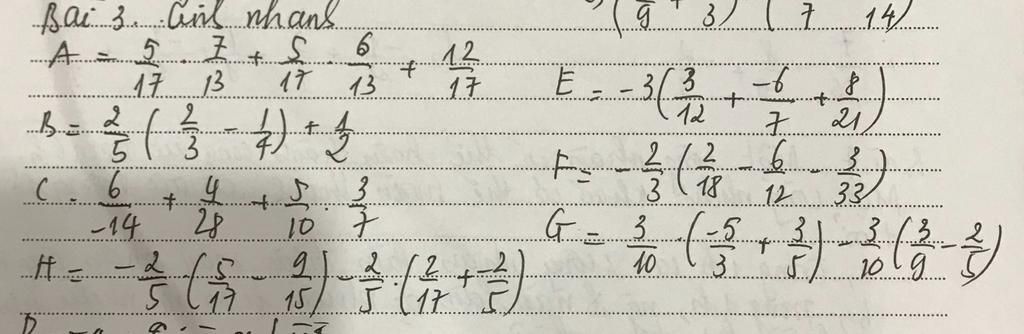 Bài 3. Tính nhanh
A = 5/17 . 7/13 + 5/17 . 6/13 + 12/17
B = 2/5 ( 2/3 - 1/4 ) + 1/2
C = 6/-14 + 4/28 + 5/10 . 3/7
H = -2/5 . ( 5/17 - 9/15 ) - 2/5 . ( 2/17 + -2/5 )
9 + 3 ) ( 7 14 )
E = -3 ( 3/12 + -6/7 + 8/21 )
F = -2/3 ( 2/18 - 6/12 - 3/33 )
G = 3/10 . ( -5/3 + 3/5 ) - 3/10 ( 3/9 - 2/5 )